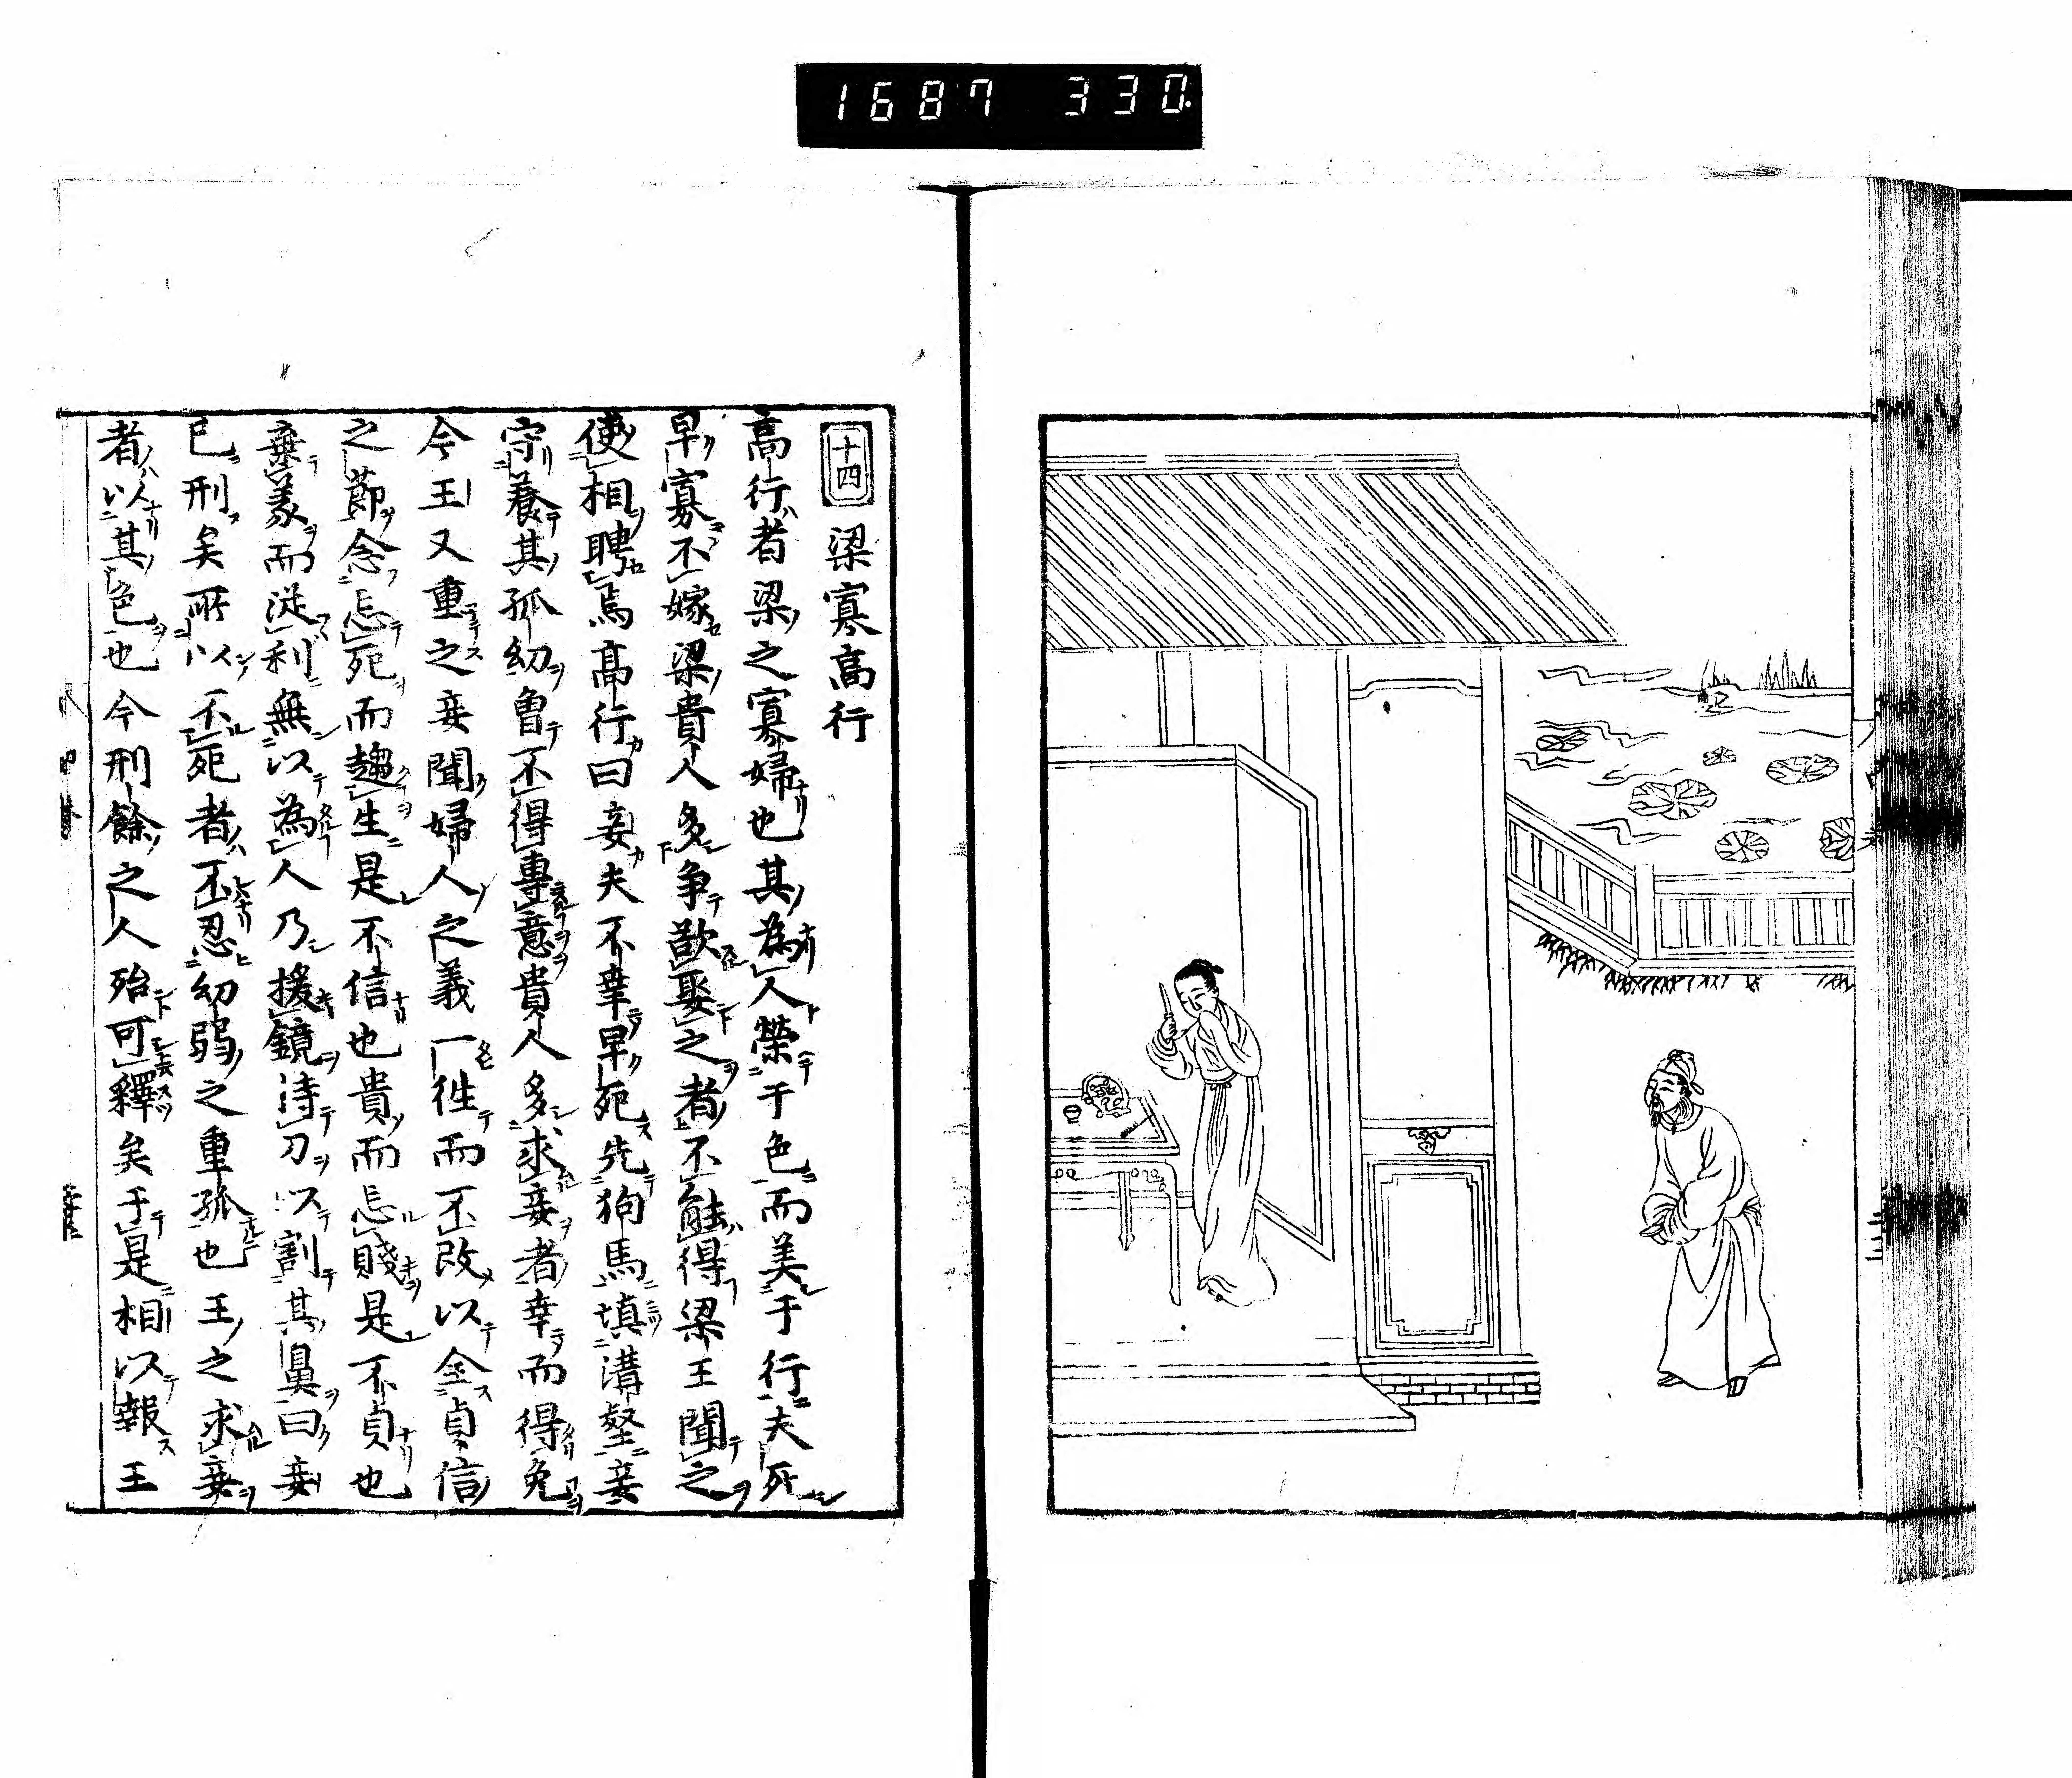 1687 330
十四 梁寡高行
高行者梁之寡婦也其為人榮于色而美于行夫死
早寡不嫁梁貴人多争欲娶之者不能得梁王聞之
使相聘焉高行曰妾夫不幸早死先狗馬填溝壑妾
守養其孤幼曾不得專意貴人多求妾者幸而得免
今王又重之妾聞婦人之義一徃而不改以全貞信
之節念忘死而趨生是不信也貴而忘賤是不貞也
棄義而從利無以為人乃援鏡持刀以割其鼻曰妾
已刑矣所以不死者不忍幼弱之重孤也王之求妾
者以其色也今刑餘之人殆可釋矣于是相以報王